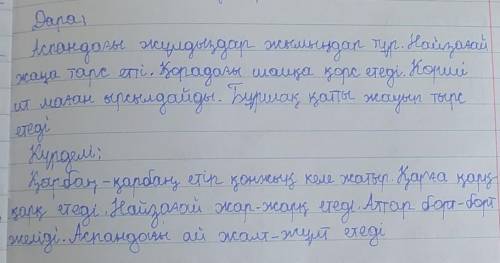 Дара;
Аспандағы жұлдыздар жымыңдар тұр. Найзағай
жаңа тарс етті. Қорадағы шошқа қорс етеді. Көрші
ит маған ырсылдайды. Бұршақ қатты жауып тырс
етеді
Күрделі;
Қарбаң-қарбаң етір қонжық келе жатыр. Қарға қарқ-
қарқ етеді. Найзағай жар-жарқ етеді. Аттар борт-борт
желіді. Аспандағы ай жалт-жұлт етеді